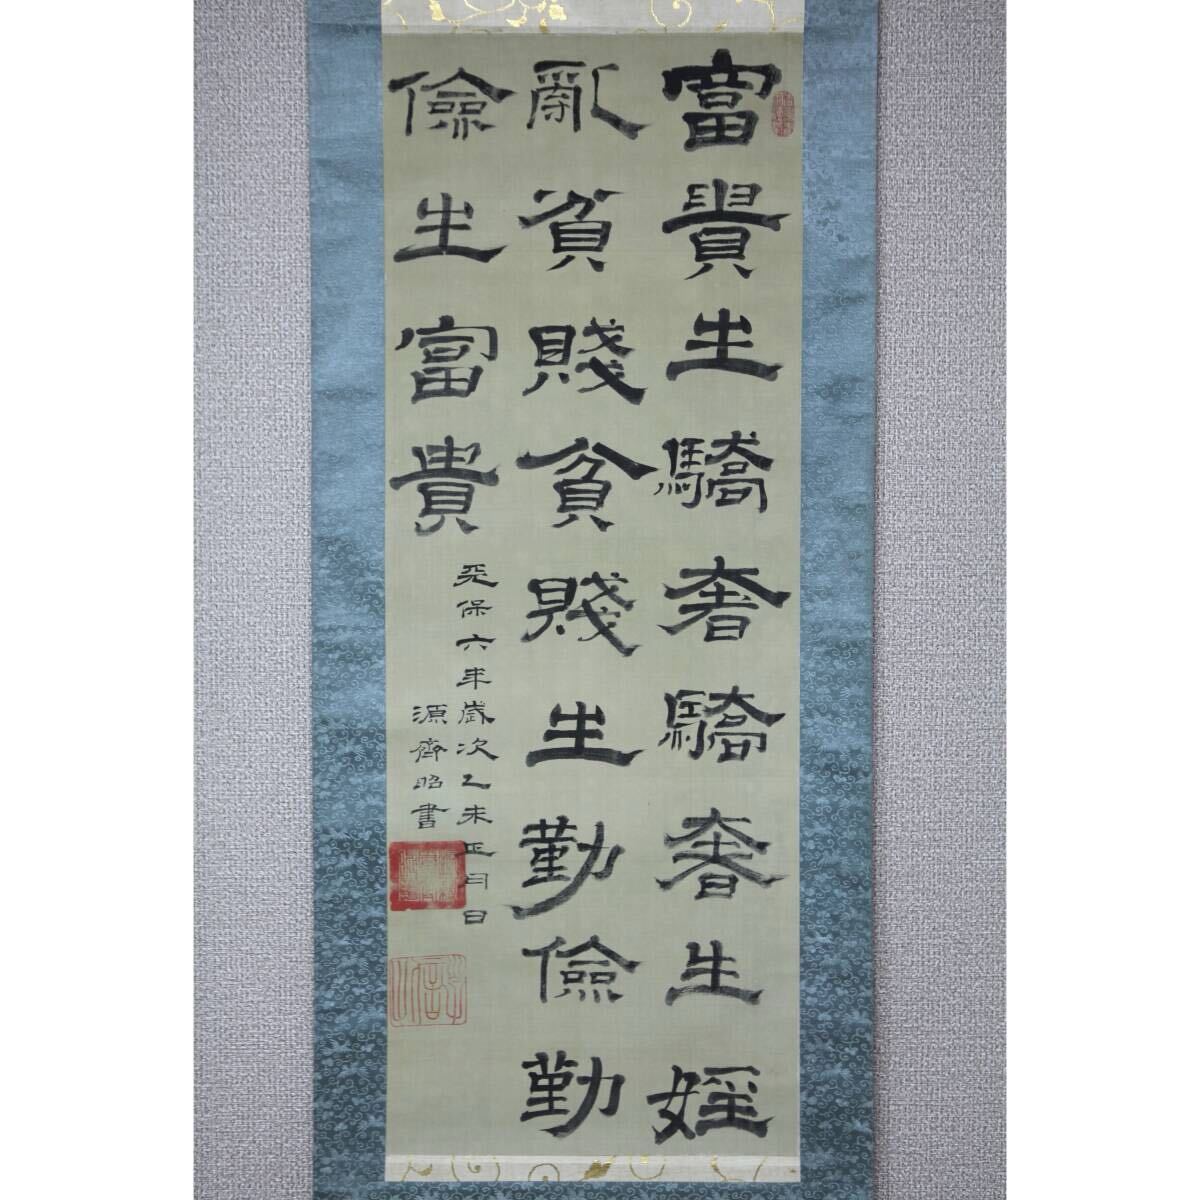 富貴生驕奢驕奢生婬
亂貧賤貧賤生勤儉勤
儉生富貴
天保六年歲次乙未正月日
源齊昭書